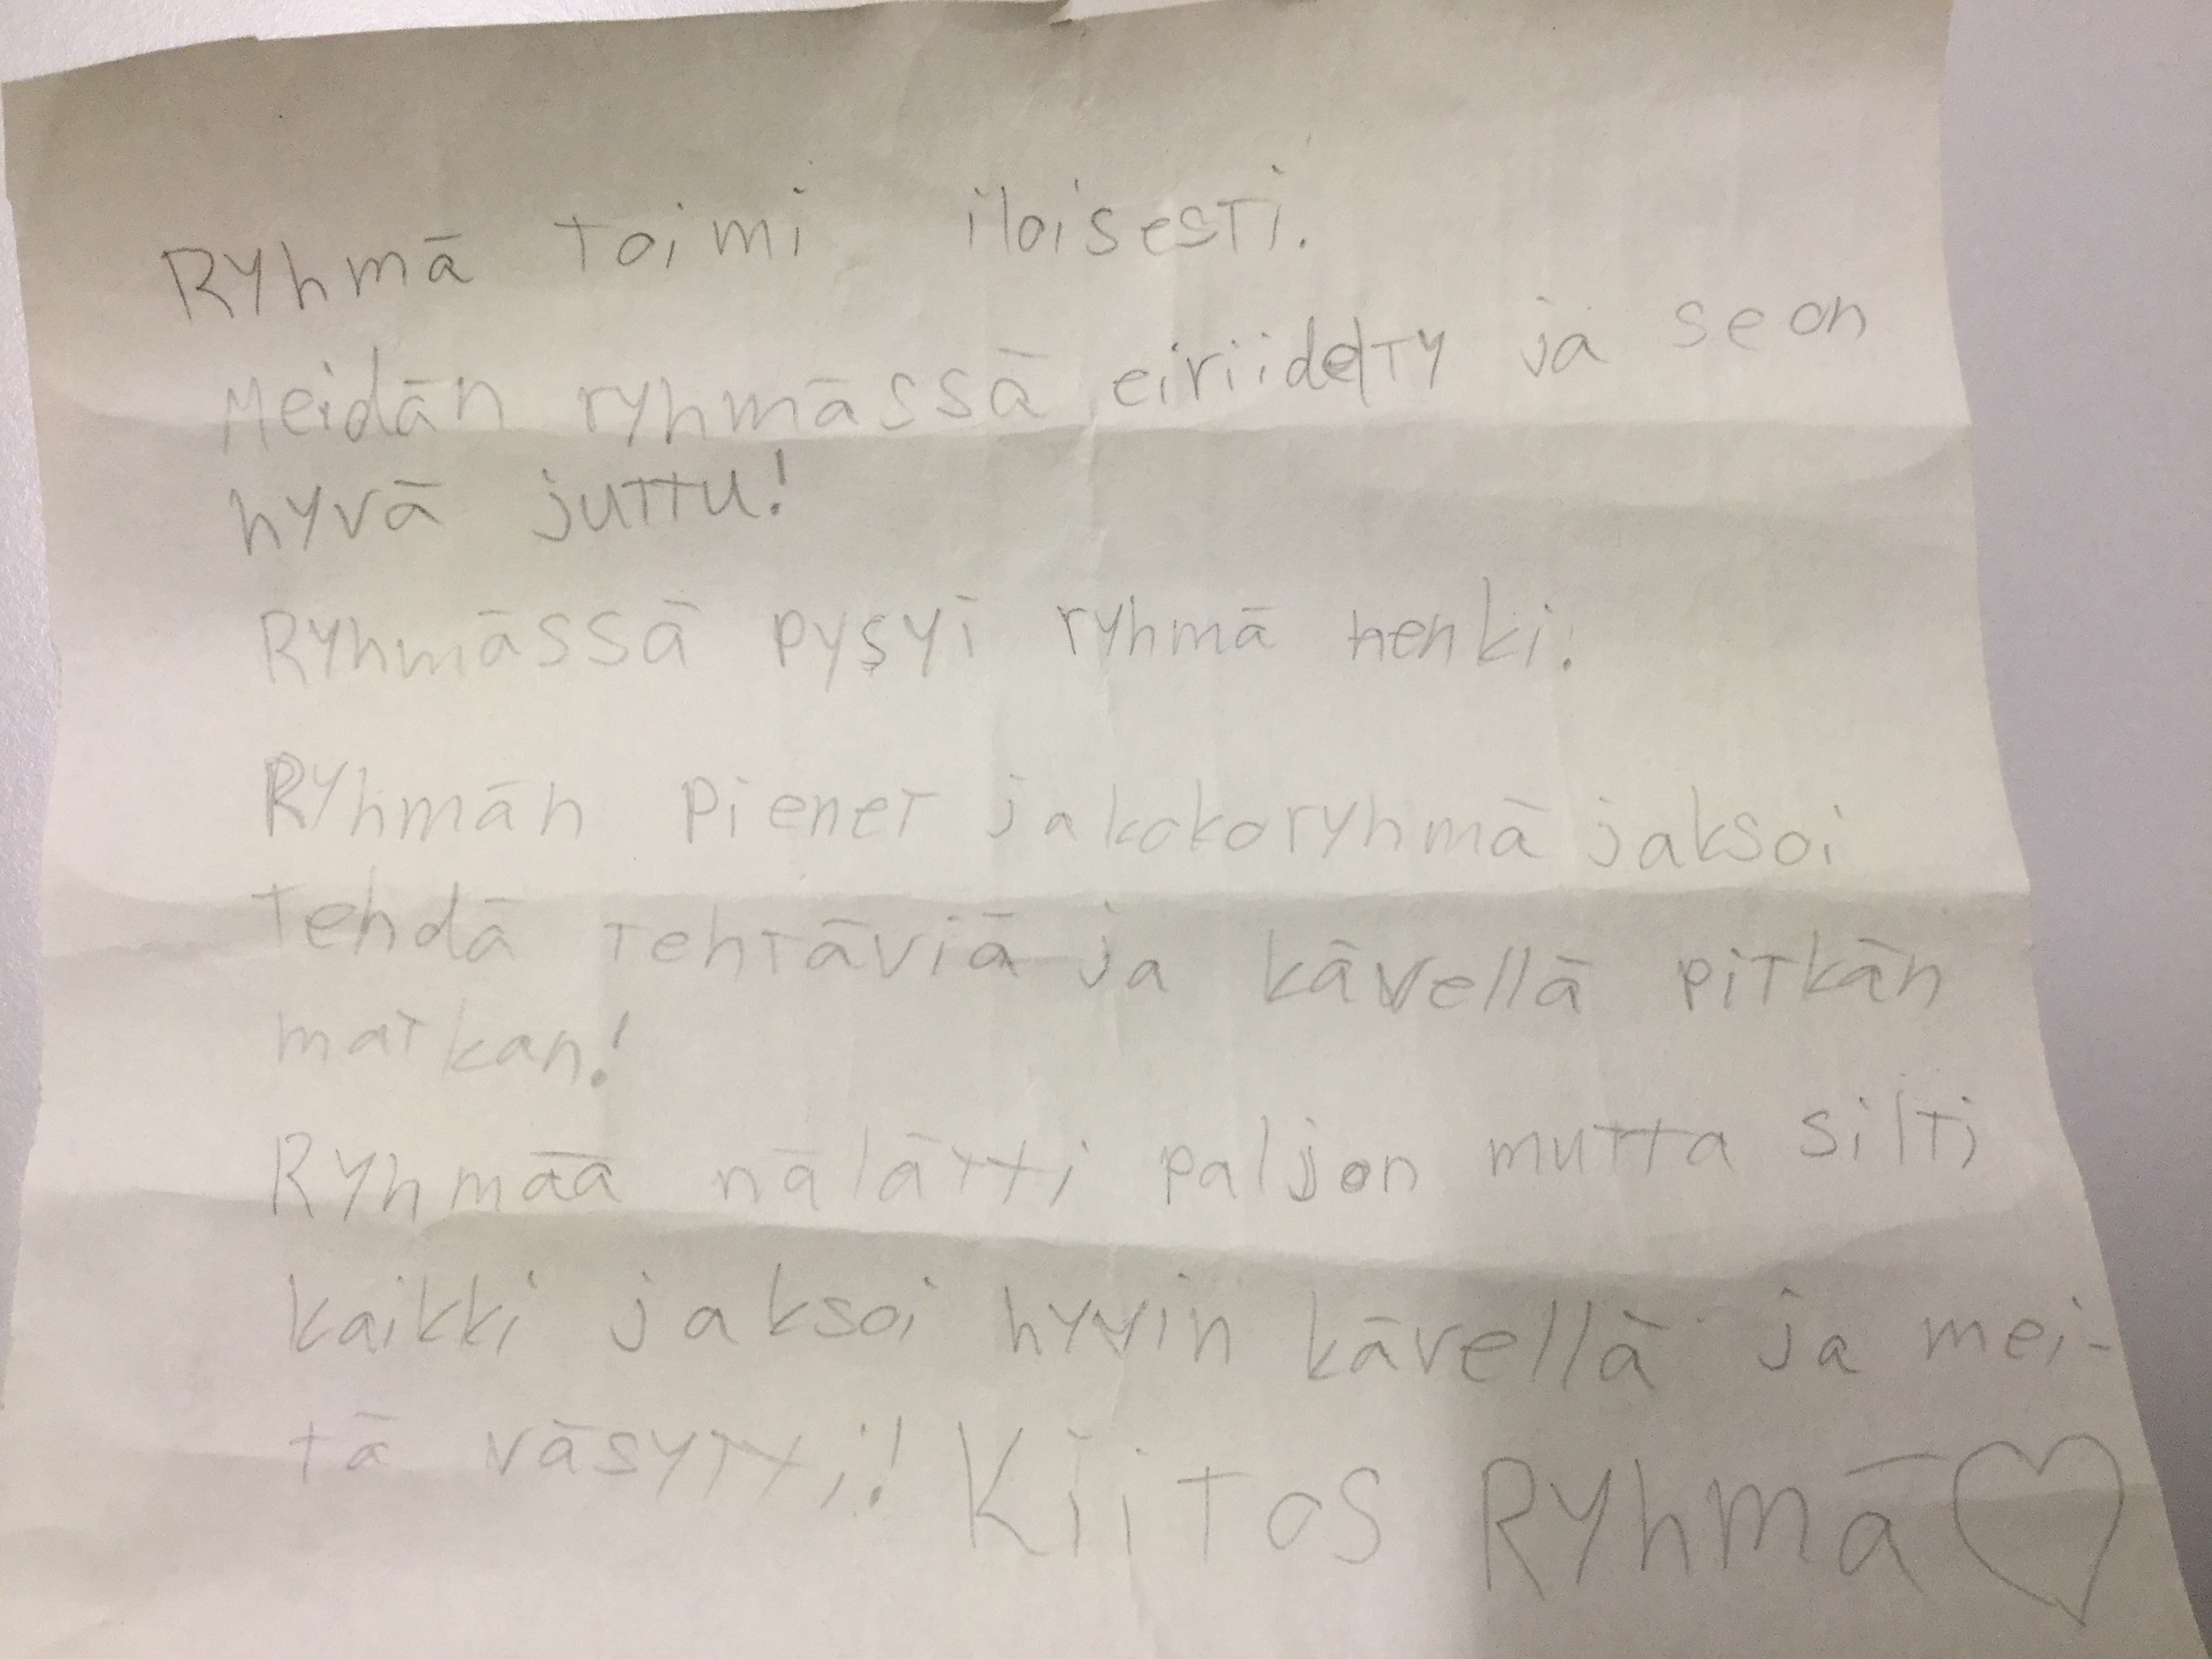 Ryhmä toimi iloisesti.
Meidän ryhmässä eiriidelty ja se on
hyvä juttu!
Ryhmässä pysyi ryhmä henki.
Ryhmän pienet jakokoryhmä jaksoi
tehdä tehtäviä ja kävellä pitkän
matkan!
Ryhmää nälätti paljon mutta silti
kaikki jaksoi hyvin kävellä ja mei-
tä väsytti! Kiitos Ryhmä ♡